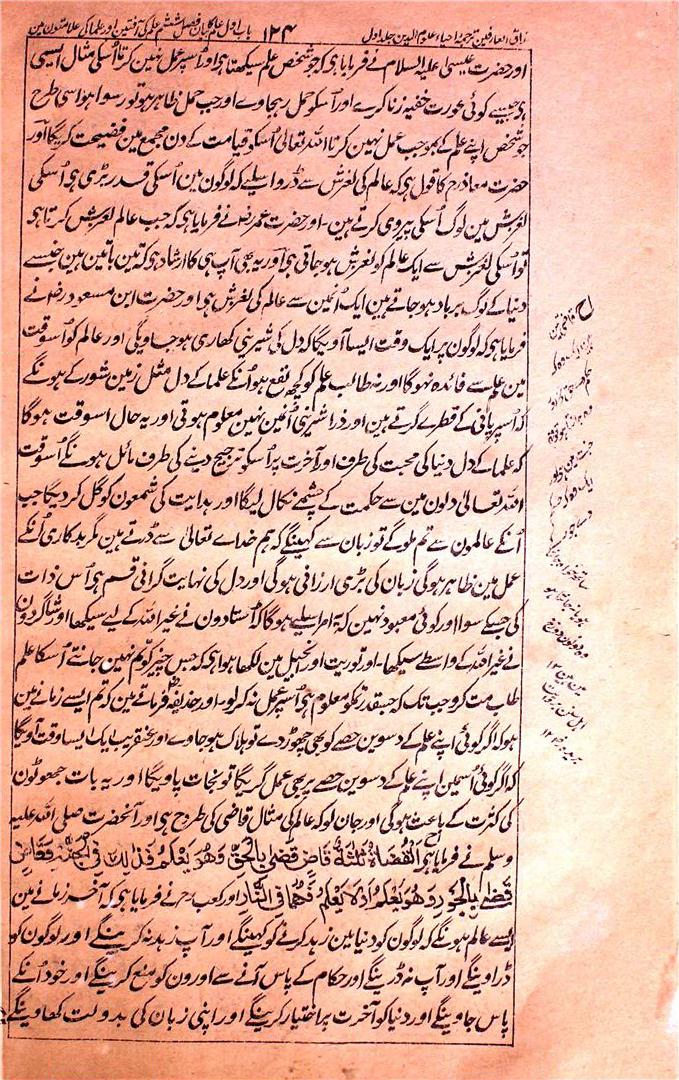 مذاق العارفین ترجمہ احیاء علوم الدین جلد اول
۱۲۴
باب اول علم کا بیان فصل ششم علم کی آفتین اور علما کی علامتون مین
اور حضرت عیسیٰ علیہ السلام نے فرمایا ہی کہ جو شخص علم سیکھتا ہی اور اُسپر عمل نہین کرتا اُسکی مثال ایسی
ہی جیسے کوئی عورت خفیہ زنا کرے اور اُسکو حمل رہجاوے اور جب حمل ظاہر ہو تو رسوا ہو اسی طرح
جو شخص اپنے علم کے بموجب عمل نہین کرتا اللہ تعالیٰ اُسکو قیامت کے دن مجمع مین فضیحت کریگا اور
حضرت معاذ رض کا قول ہی کہ عالم کی لغزش سے ڈرو اسلیے کہ لوگون مین اُسکی قدر بڑی ہی اُسکی
لغزش مین لوگ اُسکی پیروی کرتے ہین - اور حضرت عمر رض نے فرمایا ہی کہ جب عالم لغزش کرتا ہی
تو اُسکی لغزش سے ایک عالم کو لغزش ہو جاتی ہی اور یہ بھی آپ ہی کا ارشاد ہی کہ تین باتین ہین جنسے
دنیا کے لوگ برباد ہو جاتے ہین ایک اُنمین سے عالم کی لغزش ہی اور حضرت ابن مسعود رض نے
فرمایا ہی کہ لوگون پر ایک وقت ایسا آویگا کہ دل کی شیرینی کھاری ہو جاویگی اور عالم کو اُسوقت
مین علم سے فائدہ نہوگا اور نہ طالب علم کو کچھ نفع ہو اُنکے علما کے دل مثل زمین شور کے ہونگے
کہ اُسپر پانی کے قطرے گرتے ہین اور ذرا شیرینی اُنمین نہین معلوم ہوتی اور یہ حال اسوقت ہوگا
کہ علما کے دل دنیا کی محبت کی طرف اور آخرت پر اُسکو ترجیح دینے کی طرف مائل ہونگے اُسوقت
اللہ تعالیٰ دلون مین سے حکمت کے چشمے نکال لیگا اور ہدایت کی شمعون کو گل کر دیگا جب
اُنکے عالمون سے تم ملوگے تو زبان سے کہینگے کہ ہم خداے تعالیٰ سے ڈرتے ہین مگر بدکاری اُنکے
عمل مین ظاہر ہوگی زبان کی بڑی ارزانی ہوگی اور دل کی نہایت گرانی قسم ہی اُس ذات
کی جسکے سوا اور کوئی معبود نہین کہ یہ امر اسلیے ہوگا کہ اُستادون نے غیر اللہ کے لیے سیکھا اور شاگردون
نے غیر اللہ کے واسطے سیکھا - اور توریت اور انجیل مین لکھا ہوا ہی کہ جس چیز کو تم نہین جانتے اُسکا علم
طلب مت کرو جب تک کہ جسقدر تمکو معلوم ہی اُسپر عمل نہ کر لو - اور حذیفہ رض فرماتے ہین کہ تم ایسے زمانے مین
ہو کہ اگر کوئی اپنے علم کے دسوین حصے کو بھی چھوڑ دے تو ہلاک ہو جاوے اور عنقریب ایک ایسا وقت آویگا
کہ اگر کوئی اُسمین اپنے علم کے دسوین حصے پر بھی عمل کریگا تو نجات پاویگا اور یہ بات جھوٹون
کی کثرت کے باعث ہوگی اور جان لو کہ عالم کی مثال قاضی کی طرح ہی اور آنحضرت صلی اللہ علیہ
وسلم نے فرمایا ہی القضاۃ ثلثۃ قاضٍ قضیٰ بالحق وھو یعلم فذلک فی الجنۃ وقاضٍ
قضیٰ بالجور وھو یعلم او لا یعلم فھما فی النار اور کعب رح نے فرمایا ہی کہ آخر زمانے مین
ایسے عالم ہونگے کہ لوگون کو دنیا مین زہد کرنے کو کہینگے اور آپ زہد نہ کرینگے اور لوگون کو
ڈراوینگے اور آپ نہ ڈرینگے اور حکام کے پاس آنے سے اورون کو منع کرینگے اور خود اُنکے
پاس جاوینگے اور دنیا کو آخرت پر اختیار کرینگے اور اپنی زبان کی بدولت کھاوینگے